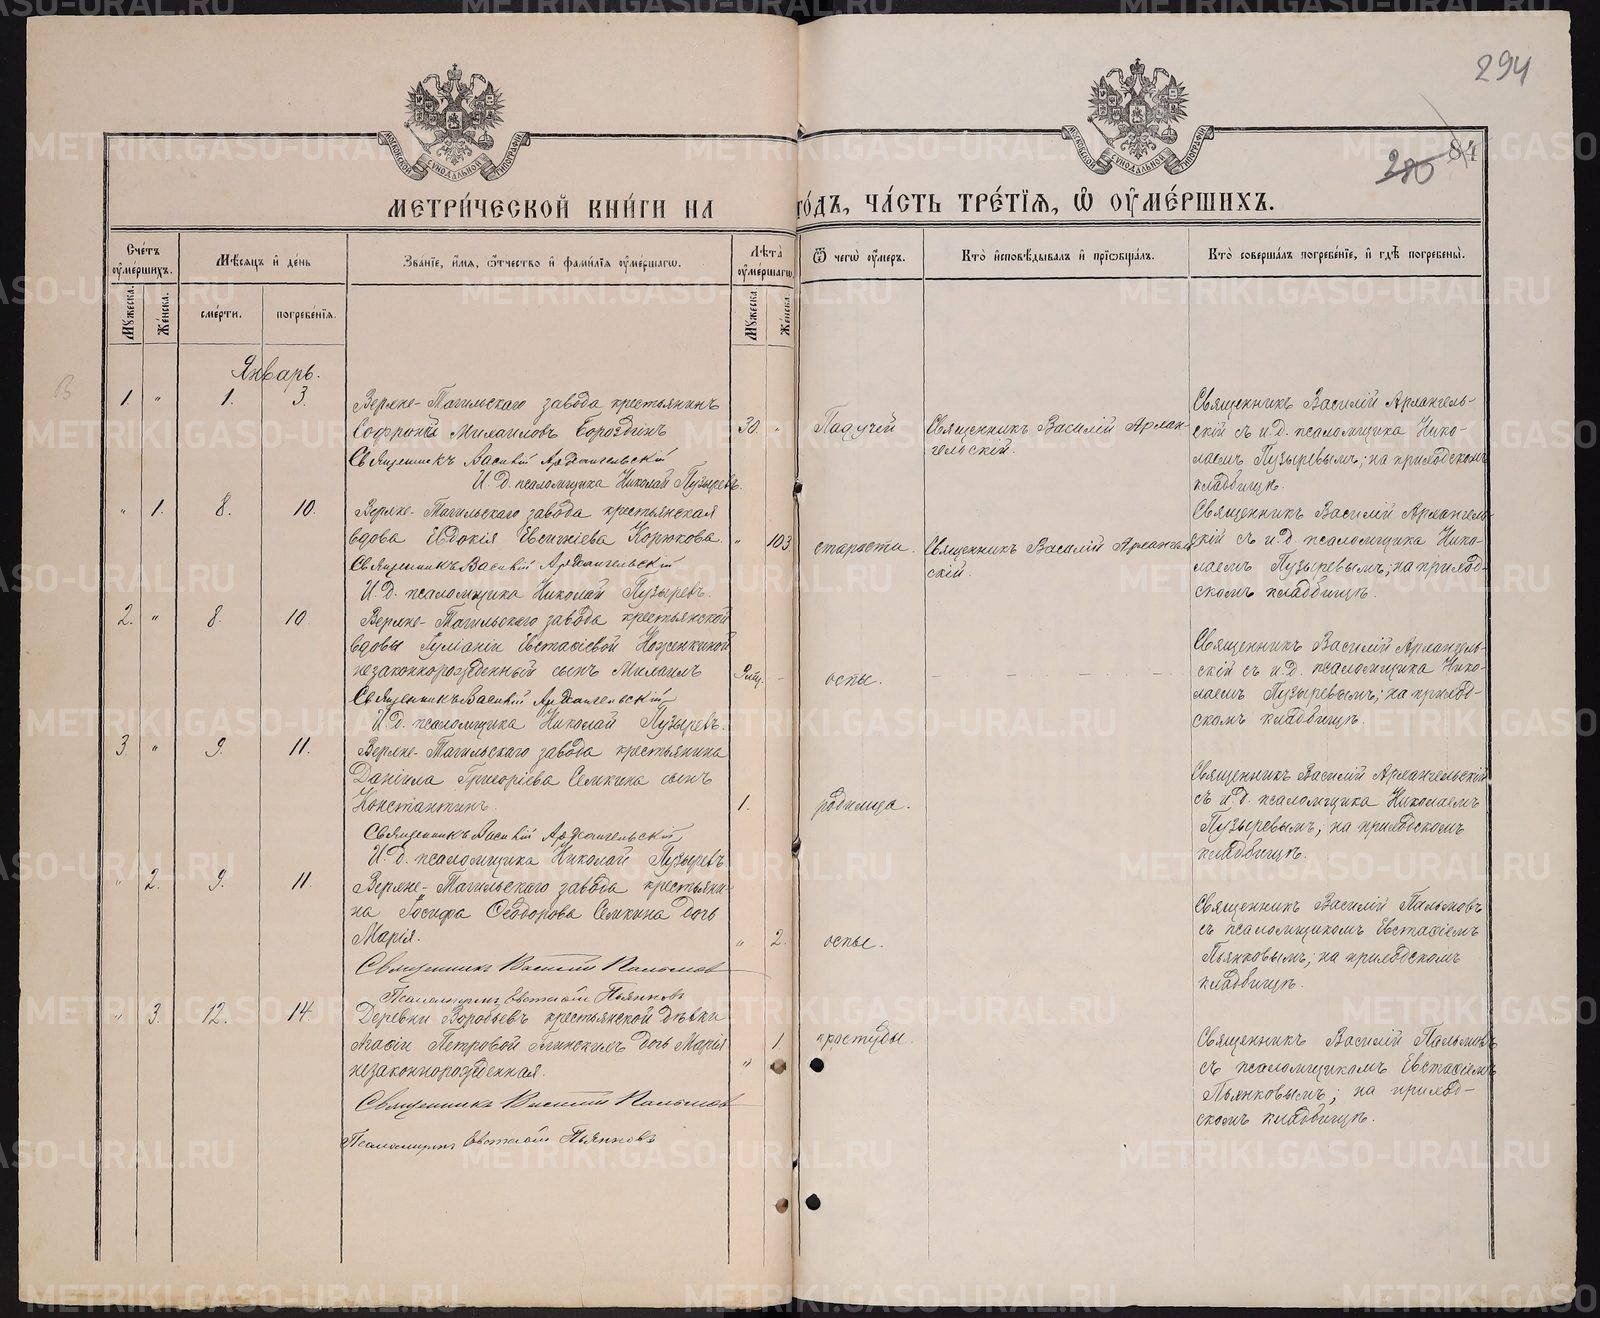 294
280
84
МОСКОВСКОЙ СѴНОДАЛЬНОЙ ТИПОГРАФІИ
МОСКОВСКОЙ СѴНОДАЛЬНОЙ ТИПОГРАФІИ
МЕТРИ́ЧЕСКОЙ КНИ́ГИ НА ГО́ДЪ, ЧА́СТЬ ТРЕ́ТІѦ, Ѽ ОУ҆МЕ́РШИХЪ.
Сче́тъ оу҆ме́ршихъ.
Мѣ́сѧцъ и҆ де́нь
Зва́нїе, и҆́мѧ, ѻ҆́тчество и҆ фами́лїѧ оу҆ме́ршагѡ.
Лѣ́та оу҆ме́ршагѡ.
Ѿ чегѡ̀ оу҆́меръ.
Кто̀ и҆сповѣ́дывалъ и҆ прїѡбща́лъ.
Кто̀ соверша́лъ погребе́нїе, и҆ гдѣ̀ погребены̀.
Мꙋ́жеска.
Же́нска.
сме́рти.
погребе́нїѧ.
Мꙋ́жеска.
Же́нска.
Январь.
1. " 1. 3. Верхне-Тагильскаго завода крестьянинъ
Софроній Михаиловъ Бороздинъ 30. "
Священникъ Василій Архангельскій
И. Д. псаломщика Николай Пузыревъ.
Падучей
Священникъ Василій Архан-
гельскій.
Священникъ Василій Архангель-
скій съ и.д. псаломщика Нико-
лаемъ Пузыревымъ; на приходскомъ
кладбищѣ.
" 1. 8. 10. Верхне-Тагильскаго завода крестьянская
вдова Евдокія Евсигніева Корюкова. " 103
Священникъ Василій Архангельскій
И. Д. псаломщика Николай Пузыревъ.
старости.
Священникъ Василій Архангель-
скій.
Священникъ Василій Архангель-
скій съ и.д. псаломщика Нико-
лаемъ Пузыревымъ; на приход-
скомъ кладбищѣ.
2. " 8. 10. Верхне-Тагильскаго завода крестьянской
вдовы Евстафіевой
незаконнорожденный сынъ Михаилъ
Священникъ Василій Архангельскій
И. Д. псаломщика Николай Пузыревъ.
оспы.
Священникъ Василій Архангель-
скій съ и.д. псаломщика Нико-
лаемъ Пузыревымъ; на приход-
скомъ кладбищѣ.
3. " 9. 11. Верхне-Тагильскаго завода крестьянина
Даніила Григоріева Семкина сынъ
Константинъ. 1.
Священникъ Василій Архангельскій
И. Д. псаломщика Николай Пузыревъ.
родимца.
Священникъ Василій Архангельскій
съ и.д. псаломщика Николаемъ
Пузыревымъ; на приходскомъ
кладбищѣ.
" 2. 9. 11. Верхне-Тагильскаго завода крестьяни-
на Іосифа Ѳеодорова Семкина дочь
Марія. " 2.
Священникъ Василій Пальмовъ
Псаломщикъ Евстафій Пьянковъ
оспы.
Священникъ Василій Пальмовъ
съ псаломщикомъ Евстафіемъ
Пьянковымъ; на приходскомъ
кладбищѣ.
" 3. 12. 14. Деревни Воробьевъ крестьянской дѣвки
Агафіи Петровой дочь Марія
незаконнорожденная. " 1
Священникъ Василій Пальмовъ
Псаломщикъ Евстафій Пьянковъ
простуды.
Священникъ Василій Пальмовъ
съ псаломщикамъ Евстафіемъ
Пьянковымъ; на приход-
скомъ кладбищѣ.
METRIKI.GASO-URAL.RU